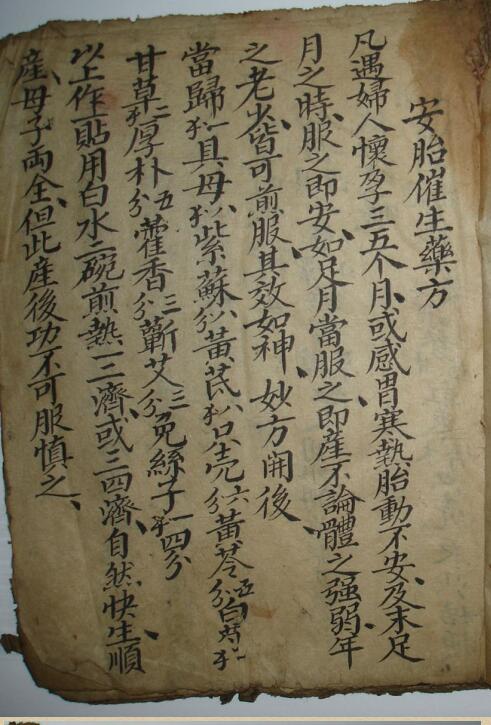 安胎催生藥方
凡遇婦人懷孕三五个月、或感冒寒熱胎動不安、及未足
月之時、服之即安、如足月當服之、即產不論體之強弱、年
之老少皆可煎服其效如神、妙方開後、
當歸一具母紫蘇黃芪只壳六分黃芩五分白芍
甘草厚朴五分藿香三分蘄艾三分兔絲子一四分
以上作一貼用白水二碗煎熱一二濟、或三四濟、自然快生、順
產、母子両全、但此產後功不可服慎之、